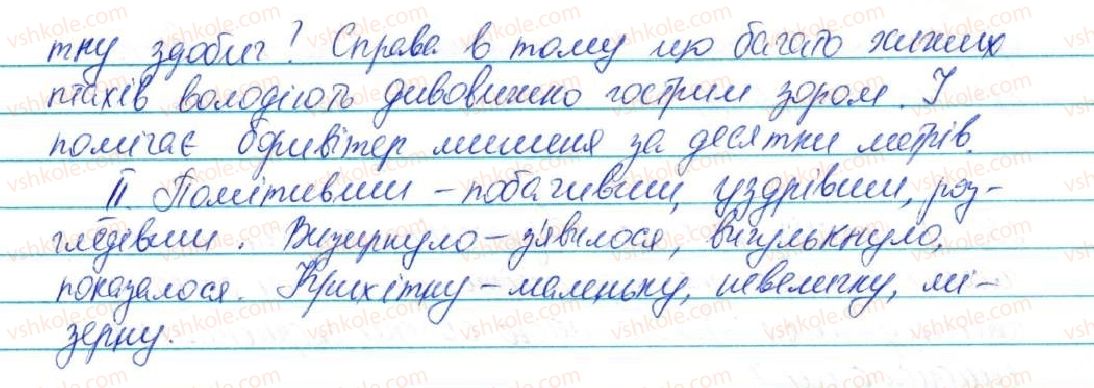 тну здобич? Справа в тому що багато хижих
птахів володіють дивовижно гострим зором. І
помічає боривітер мишеня за десятки метрів.
II. Помітивши – побачивши, уздрівши, роз-
гледівши. Визирнуло – з'явилося, вигулькнуло,
показалося. Крихітну – маленьку, невеличку, мі-
зерну.